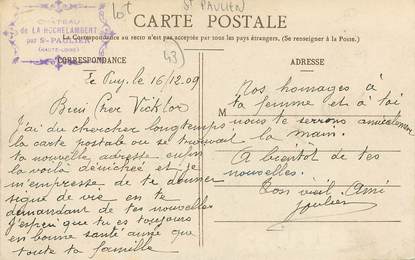 lot
St PAULIEN
CARTE POSTALE
CHÂTEAU
DE LA ROCHELAMBERT
par St-PAULIEN
(HAUTE-LOIRE)
La Correspondance au recto n'est pas acceptée par tous les pays étrangers. (Se renseigner à la Poste.)
43
CORRESPONDANCE
ADRESSE
Le Puy, le 16/12 09
Bien Cher Vicktor
J'ai du chercher longtemps
la carte postale ou se trouvait
ta nouvelle adresse enfin
la voilà dénichée et je
m'empresse de te donner
signe de vie en te
demandant de tes nouvelles
J'espère que tu es toujours
en bonne santé ainsi que
toute ta famille
M
Nos homages à
ta femme et à toi
nous te serrons amicalement
la main.
A bientôt de tes
nouvelles.
Ton vieil Ami